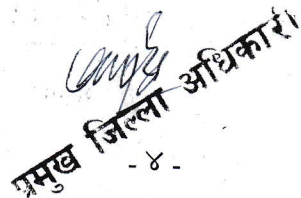 प्रमुख जिल्ला अधिकारी
- ४ -